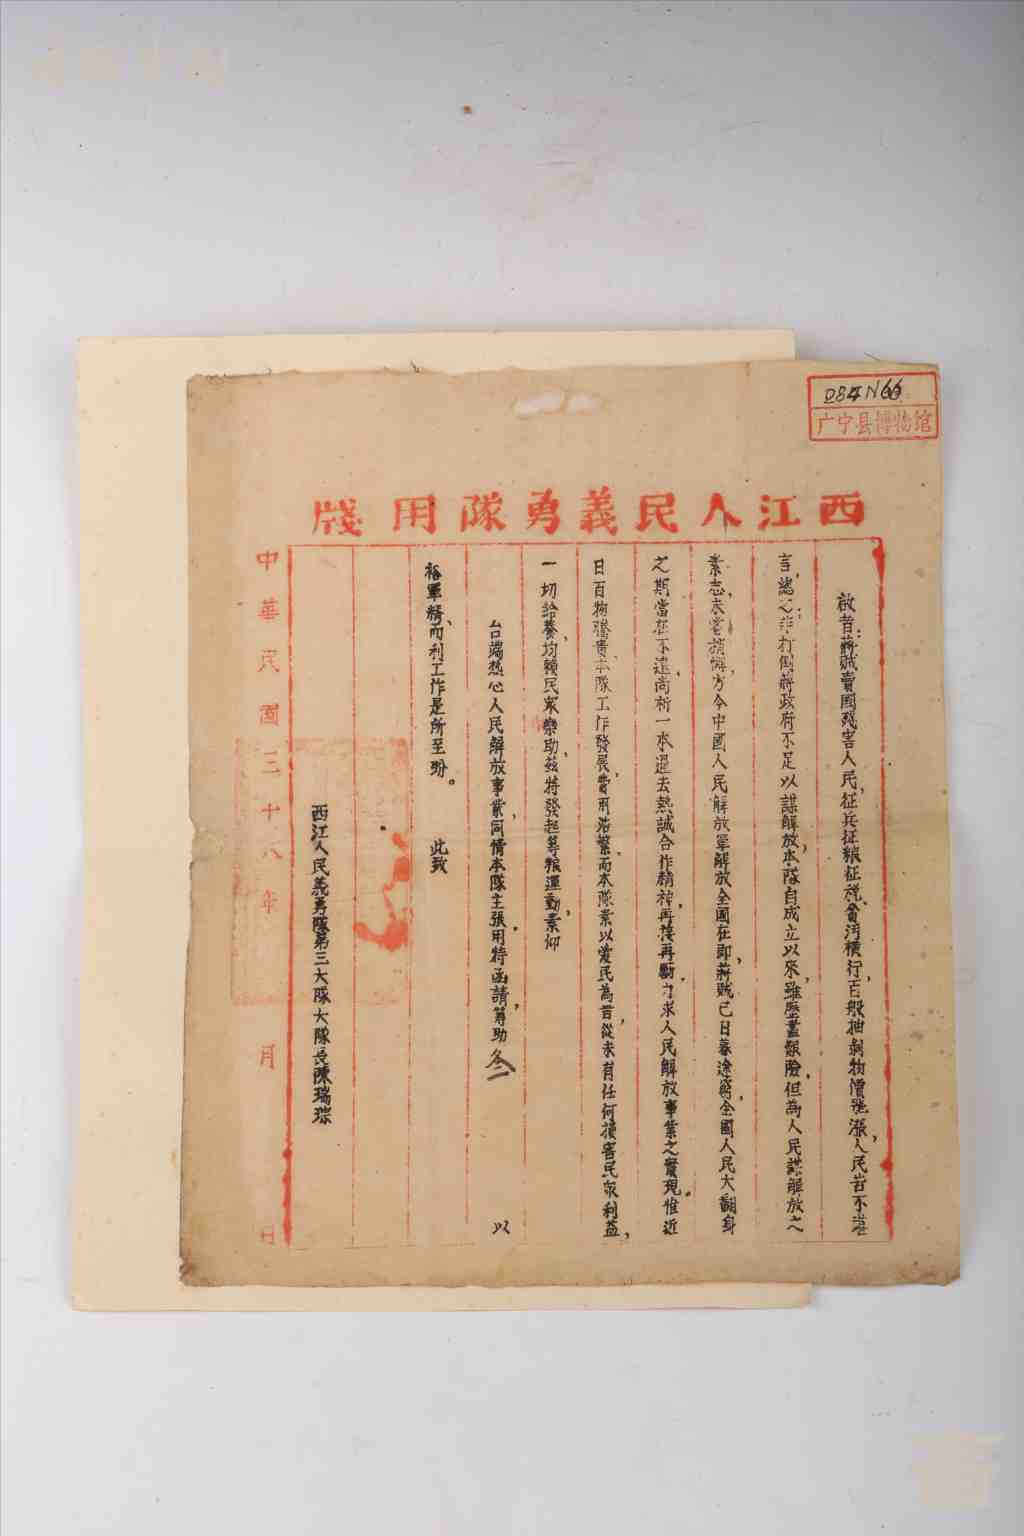 D84N66
广宁县博物馆
西江人民義勇隊用牋
啟者：蔣賊賣國殘害人民，征兵征粮征稅，貪污橫行，百般抽剝物價飛漲，人民苦不堪
言，總之非打倒蔣政府不足以謀解放，本隊自成立以來，雖歷盡艱險，但為人民謀解放之
素志，未嘗稍懈，方今中國人民解放軍解放全國在即，蔣賊已日暮途窮，全國人民大翻身
之期當在不遠，尚祈一本過去熱誠合作精神，再接再勵，力求人民解放事業之實現。惟近
日百物騰貴，本隊工作發展，費用浩繁，而本隊素以愛民為旨，從未有任何損害民眾利益，
一切給養，均賴民眾樂助，茲特發起籌粮運動，素仰
台端熱心人民解放事業，同情本隊主張，用特函請籌助 以
裕軍糈，而利工作是所至盼。 此致
西江人民義勇隊第三大隊大隊長陳瑞琮
中華民國三十八年 月 日